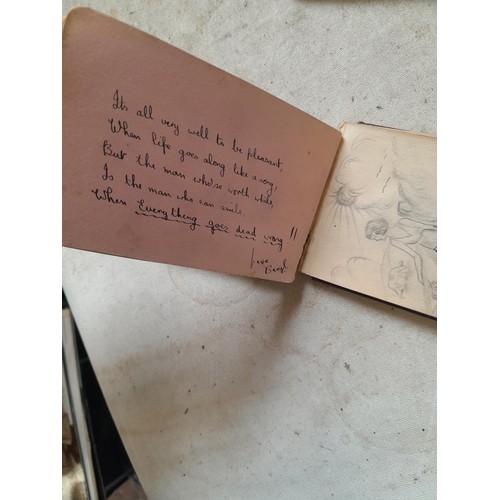 Its all very well to be pleasant,
When life goes along like a song,
But the man who'se worth while,
Is the man who can smile,
When Everything goes dead wrong!!
Love